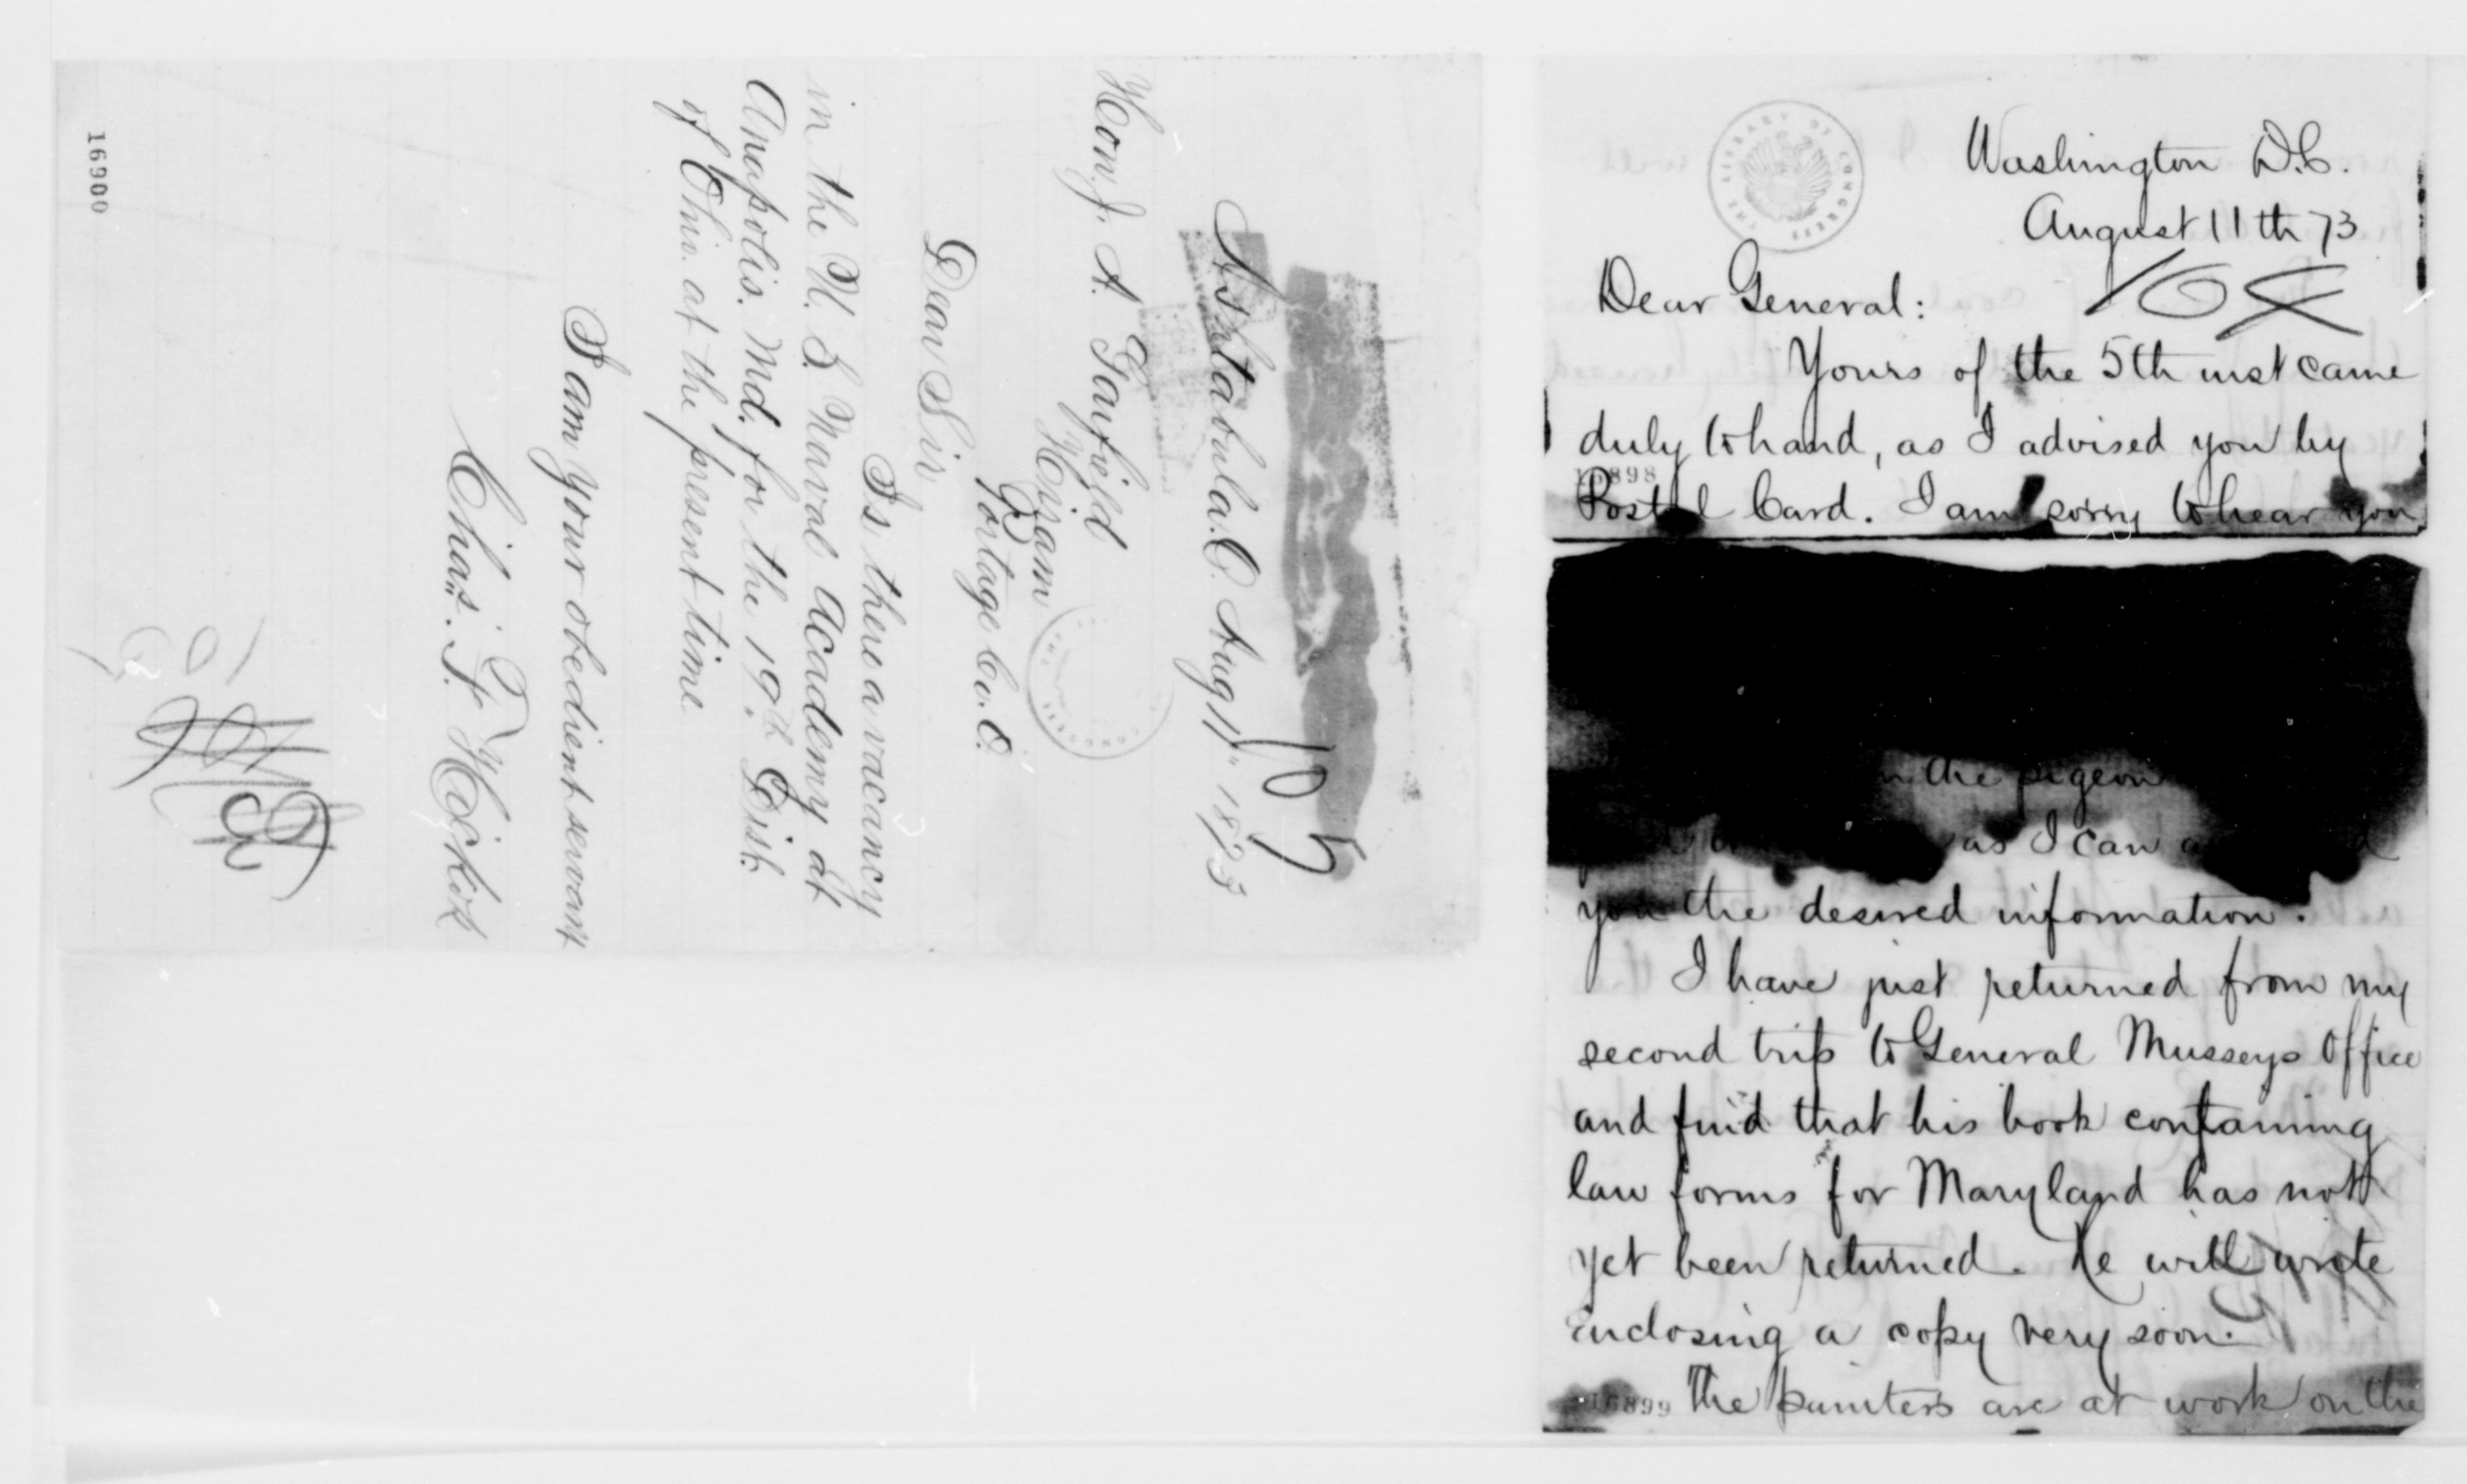 16900
Ashtabula. O. Aug 11" 1873
105
Hon. J. A. Garfield
Hiram
Portage Co. O.
Dear Sir,
Is there a vacancy
in the U. S. Naval Academy at
Anapolis. Md. for the 19th Dist.
of Ohio. at the present time
I am your obedient servant
Chas. F.
THE LIBRARY OF CONGRESS
Washington D.C.
August 11th 73
104
Dear General:
Yours of the 5th inst came
duly to hand, as I advised you by
16898
Postal Card. I am sorry to hear you
the pigeon
as I can
you the desired information.
I have just returned from my
second trip to General Musseys Office
and find that his book containing
law forms for Maryland has not
yet been returned. He will write
enclosing a copy very soon.
16899
The painters are at work on the